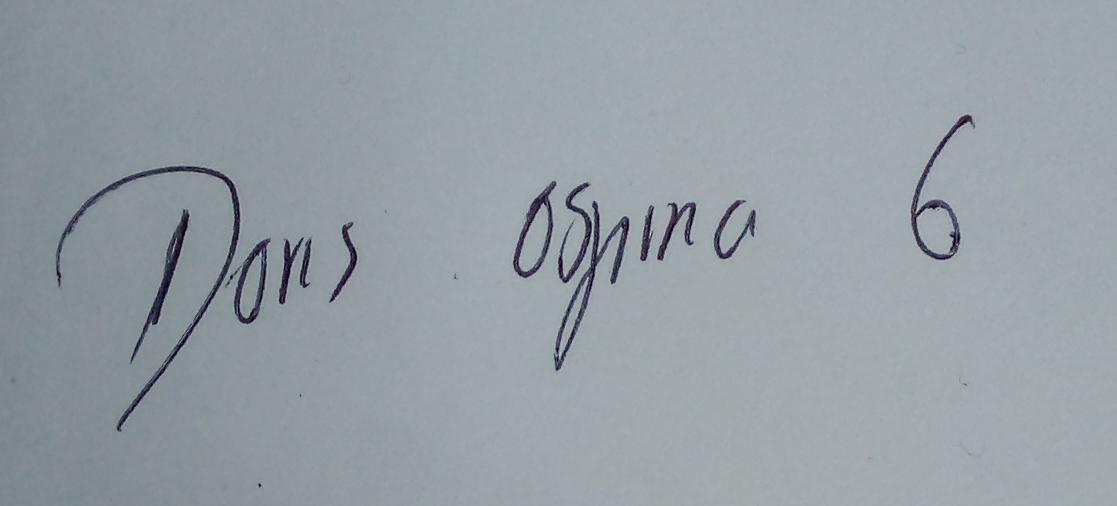 Doris Ospina G